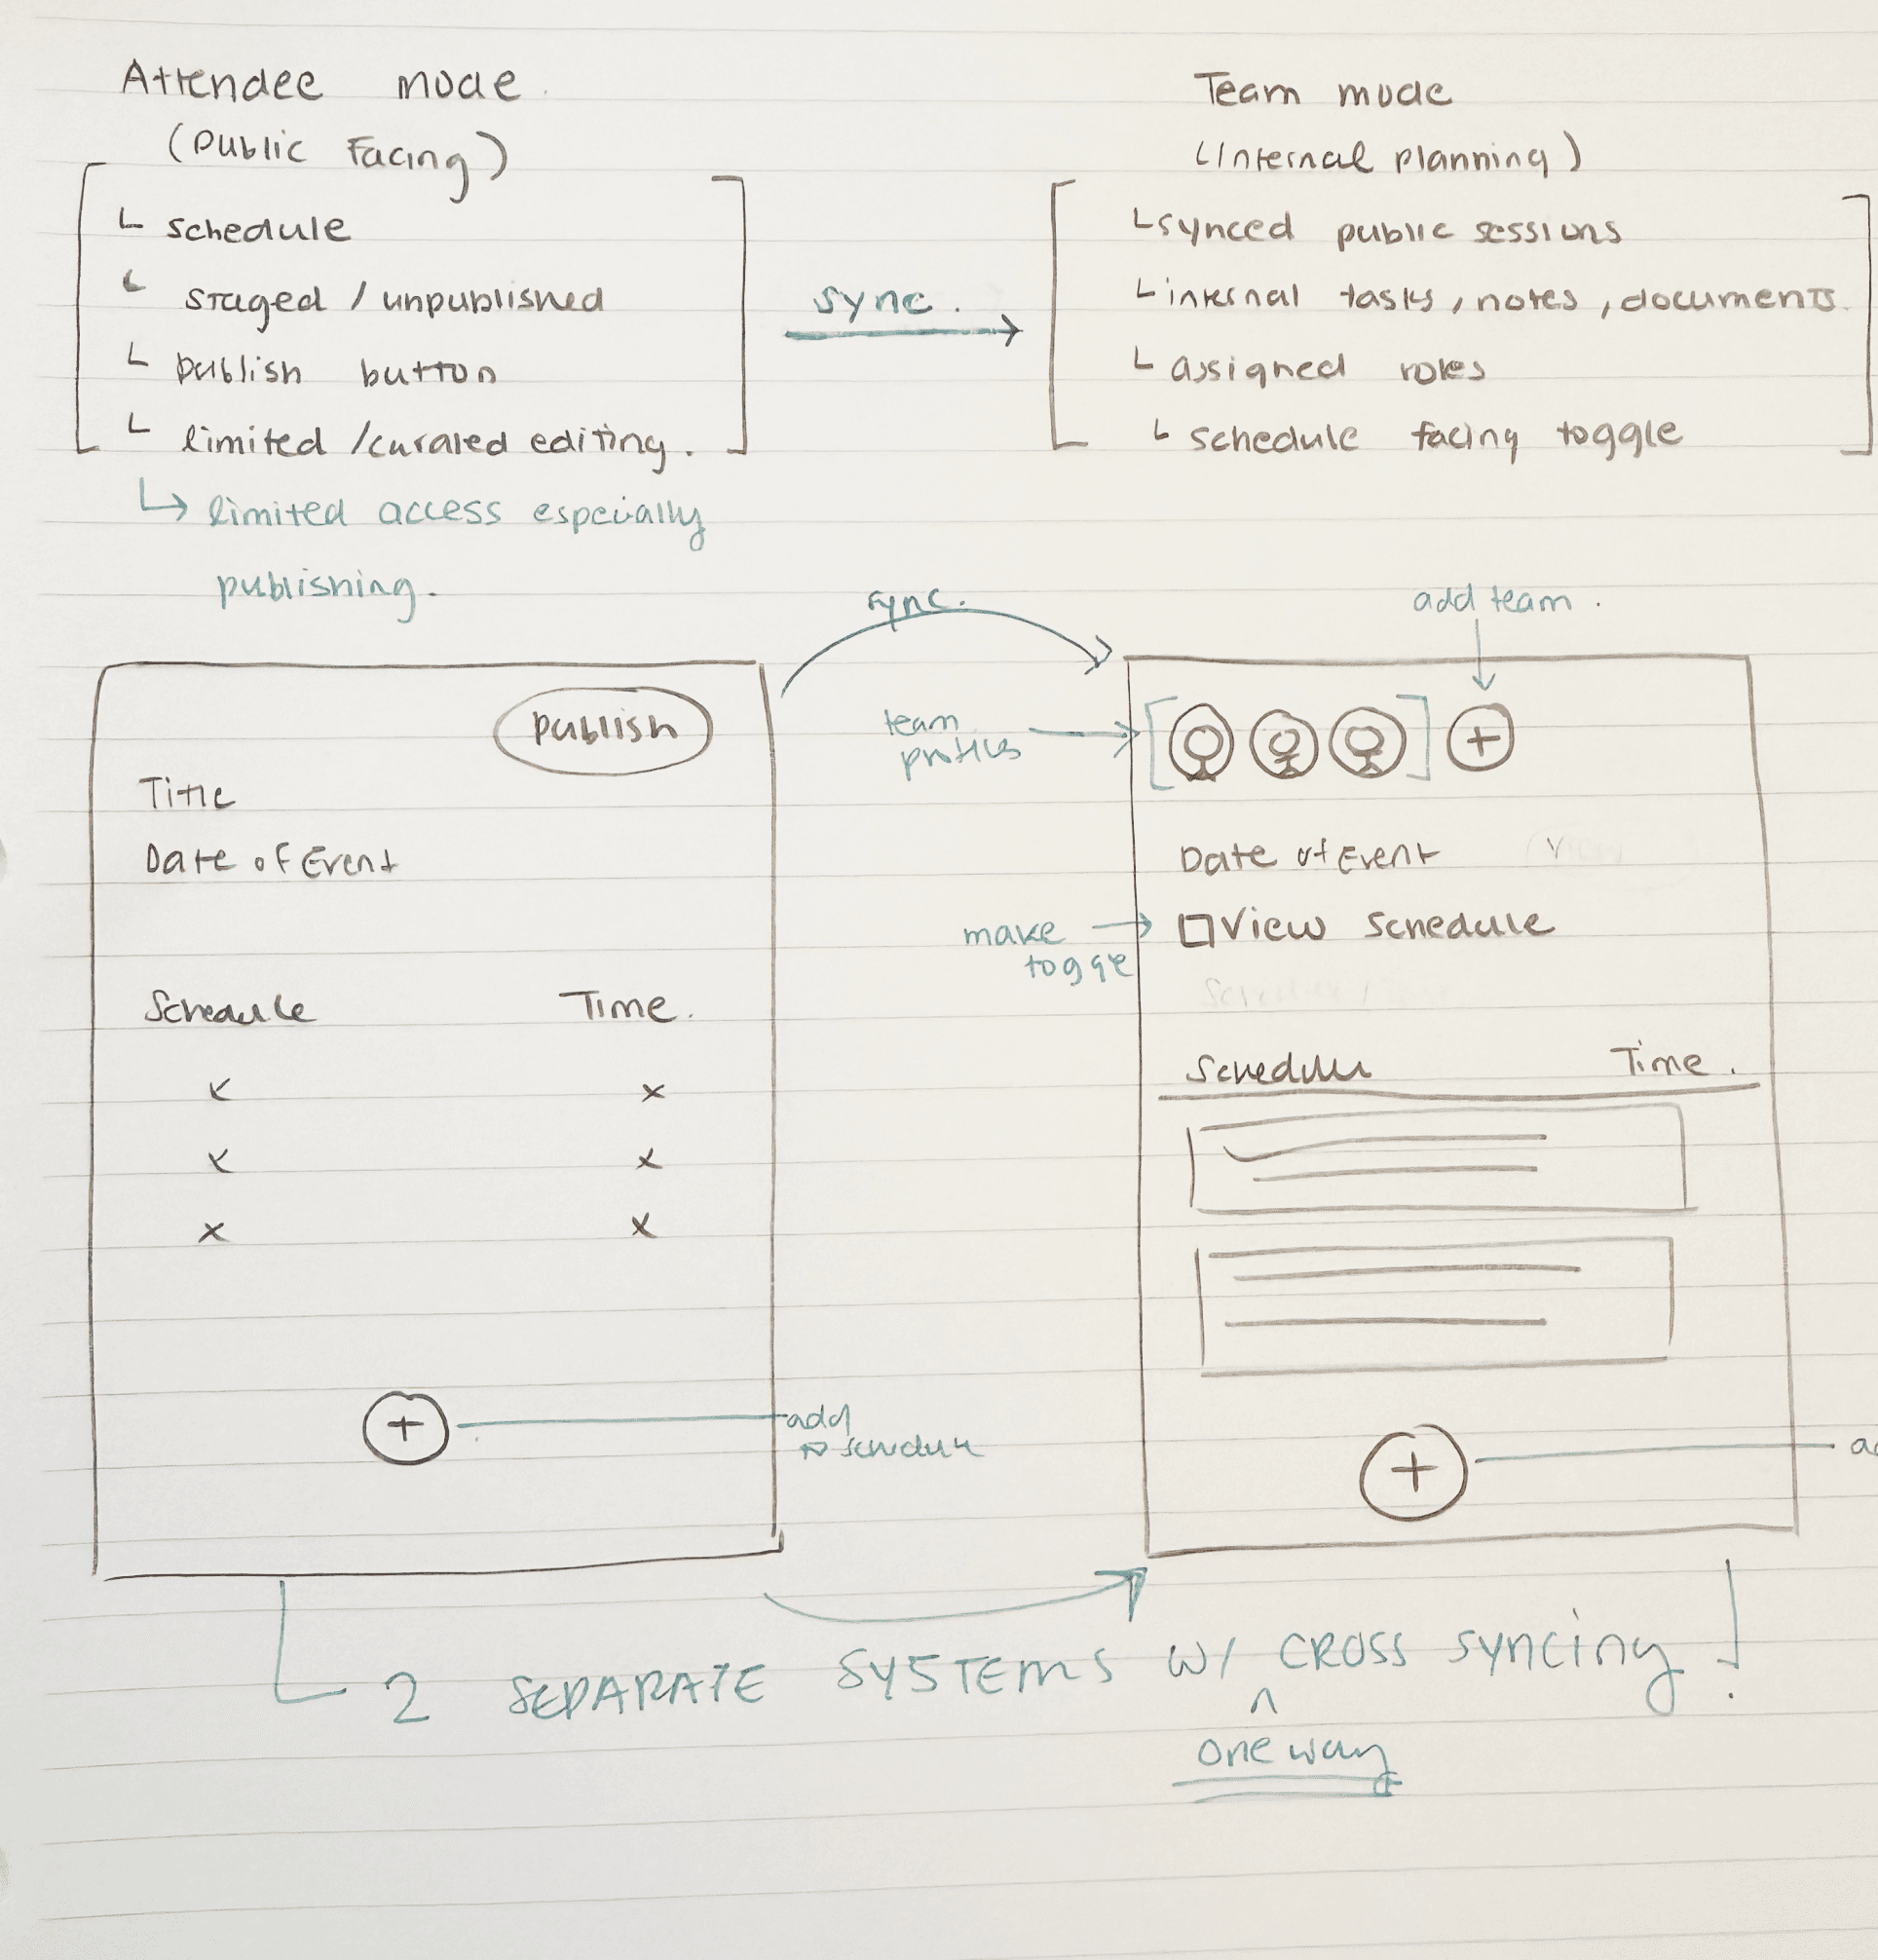 Attendee mode.
(Public Facing)
schedule
staged / unpublished
publish button
limited / curated editing.
limited access especially
publishing.
sync.
Team mode
(Internal planning)
synced public sessions
internal tasks, notes, documents.
assigned roles
schedule facing toggle
sync.
add team.
Publish
Title
Date of Event
Schedule Time.
x x
x x
x x
+
add
to schedule
team
profiles
+
Date of Event
make
toggle
View Schedule
Schedule Time.
+
2 SEPARATE SYSTEMS W/ CROSS Syncing!
^
one way